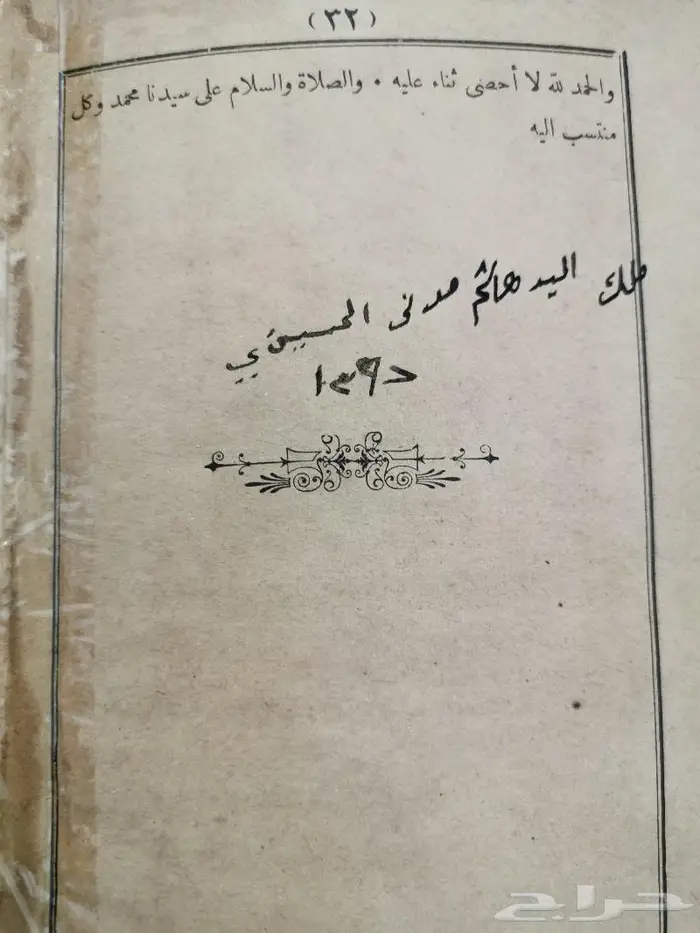 (٣٢)
والحمد لله لا أحصى ثناء عليه • والصلاة والسلام على سيدنا محمد وكل
منتسب اليه
ملك السيد هاشم مدنى الحسيني
حراج